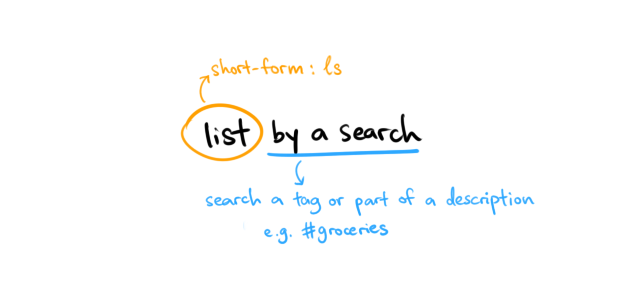 short-form: ls
list by a search
search a tag or part of a description
e.g. #groceries